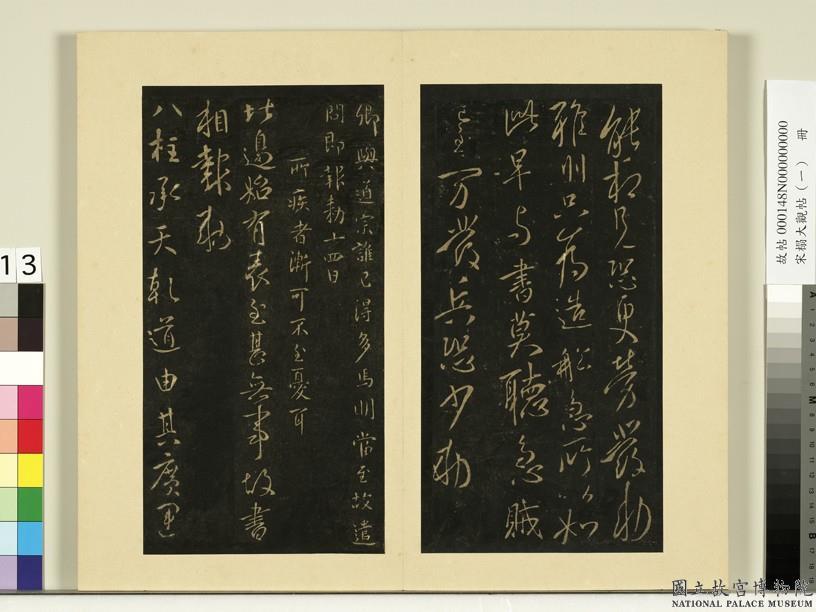 能相見恐更勞發勅
雅州只為造船急所以如
此早与書莫聽急賊
己至万發兵恐少勅
卿與道宗誰已得多馬明當至故遣
問即報勅十四日
所疾者漸可不至憂耳
比邊始有表至甚無事故書
相報勅
八柱承天乾道由其廣運
故帖000148N000000000 冊
宋榻大觀帖(一)
13
國立故宮博物院
NATIONAL PALACE MUSEUM